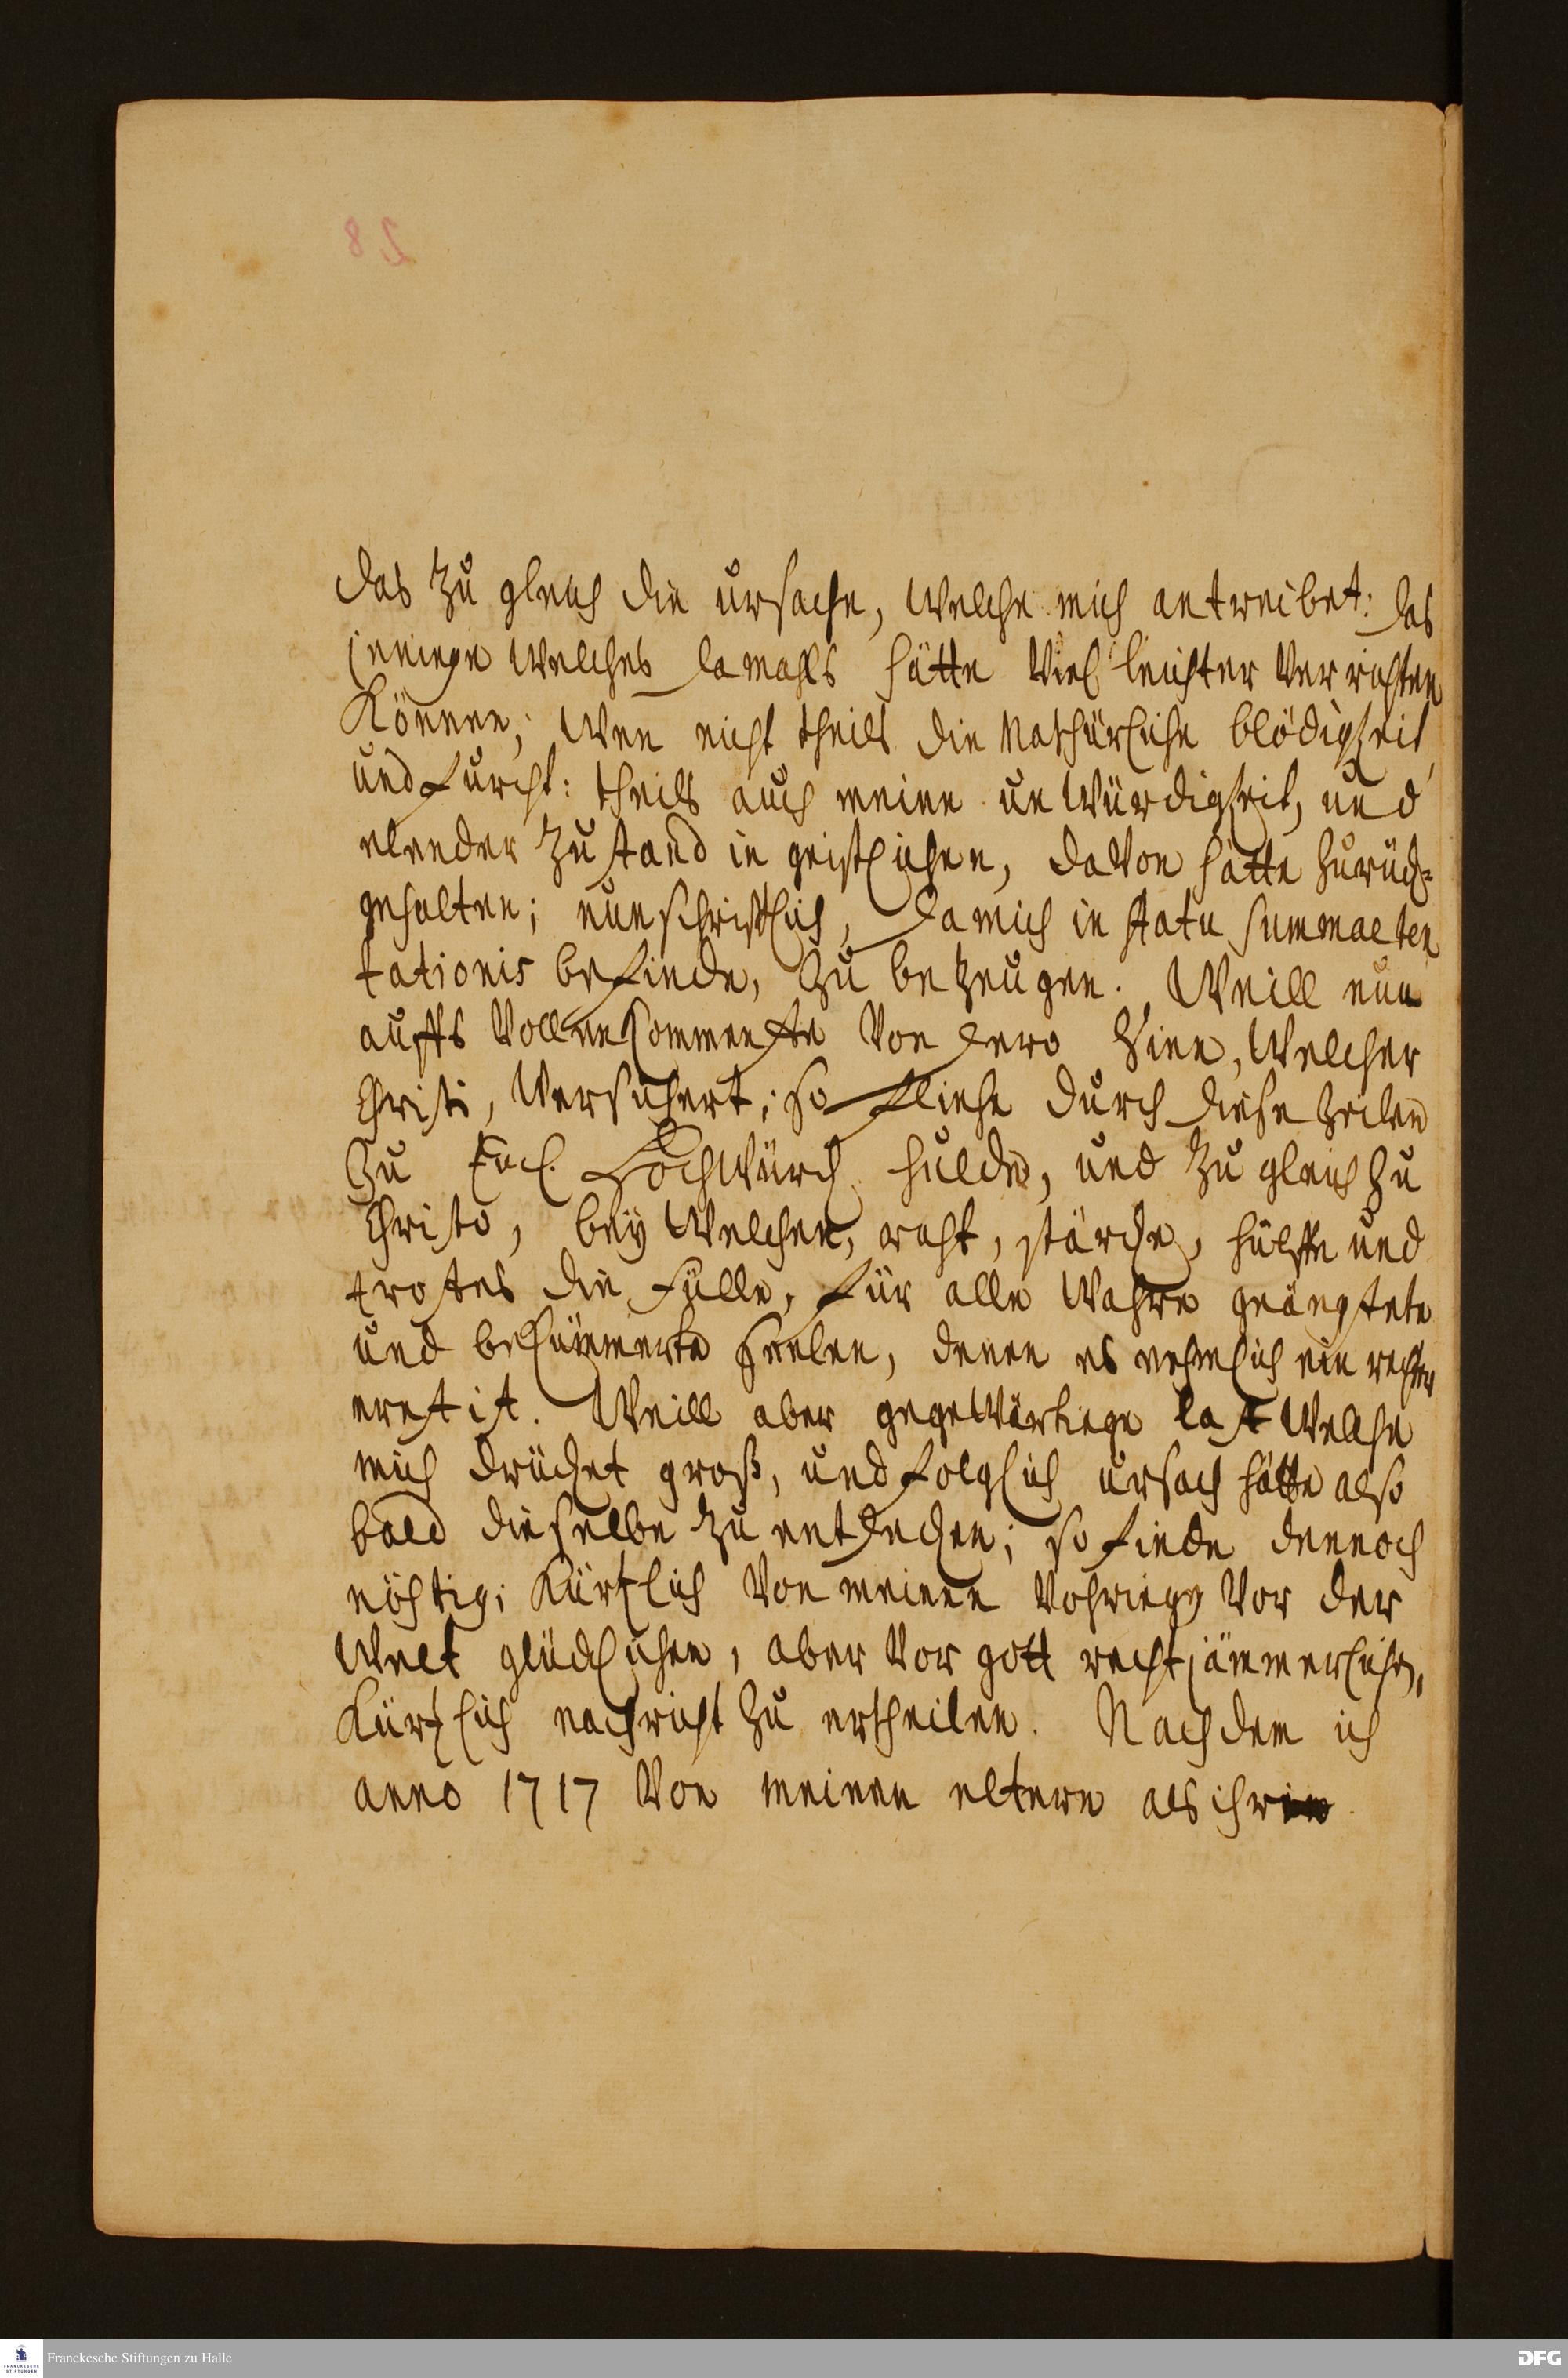 das zu gleich die ursache, Welche mich antreibet: das
jeniege Welches damahls hätte Viel leichter Verrichten
Können; Wen nicht theils die Nathürliche blödigkeit
und furcht: theils auch meine unWürdigkeit, und
elender Zustand in geistlichen, daVon hätte zurück¬
gehalten; nun schriftlich, da mich in statu summae ten
tationis befinde, zu bezeugen. Weill nun
auffs Vollenkommenste Von dero Sinn, Welcher
Christi, Versichert; so fliehe durch diese Zeilen
zu HochWürd hulde, und zu gleich zu
Christo, beÿ Welchen, raht, stärcke, hülffe und
trostes die fülle, für alle Wahre geängstete
und bekümmerte Seelen, denen es nehmlich ein rechter
ernst ist. Weill aber gegeWärtiege last Welche
mich drücket groß, und folglich ursach hätte also
bald dieselbe zu entdecken; so finde dennoch
nöhtig; Kürtzlich Von meinen Vohrieg Vor der
Welt glücklichen, aber Vor gott recht jämmerlichen,
Kürtzlich nachricht zu ertheilen. Nachdem ich
anno 1717 Von meinen eltern als ihr
28
Franckesche Stiftungen zu Halle
DFG